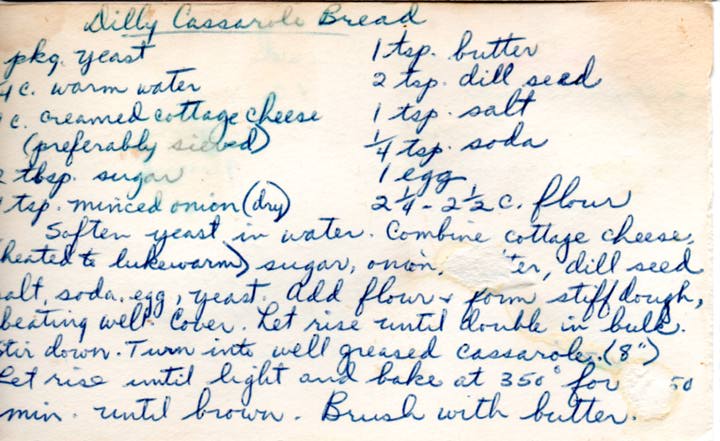 Dilly Cassarole Bread
pkg. yeast
4 c. warm water
c. creamed cottage cheese
(preferably sieved)
2 tbsp. sugar
1 tsp. minced onion (dry)
1 tsp. butter
2 tsp. dill seed
1 tsp. salt
1/4 tsp. soda
1 egg
2 1/4 - 2 1/2 c. flour
Soften yeast in water. Combine cottage cheese,
(heated to lukewarm) sugar, onion, ter, dill seed
salt, soda, egg, yeast. Add flour & form stiff dough,
beating well. Cover. Let rise until double in bulk.
Stir down. Turn into well greased cassarole. (8")
Let rise until light and bake at 350° for 50
min. until brown. Brush with butter.